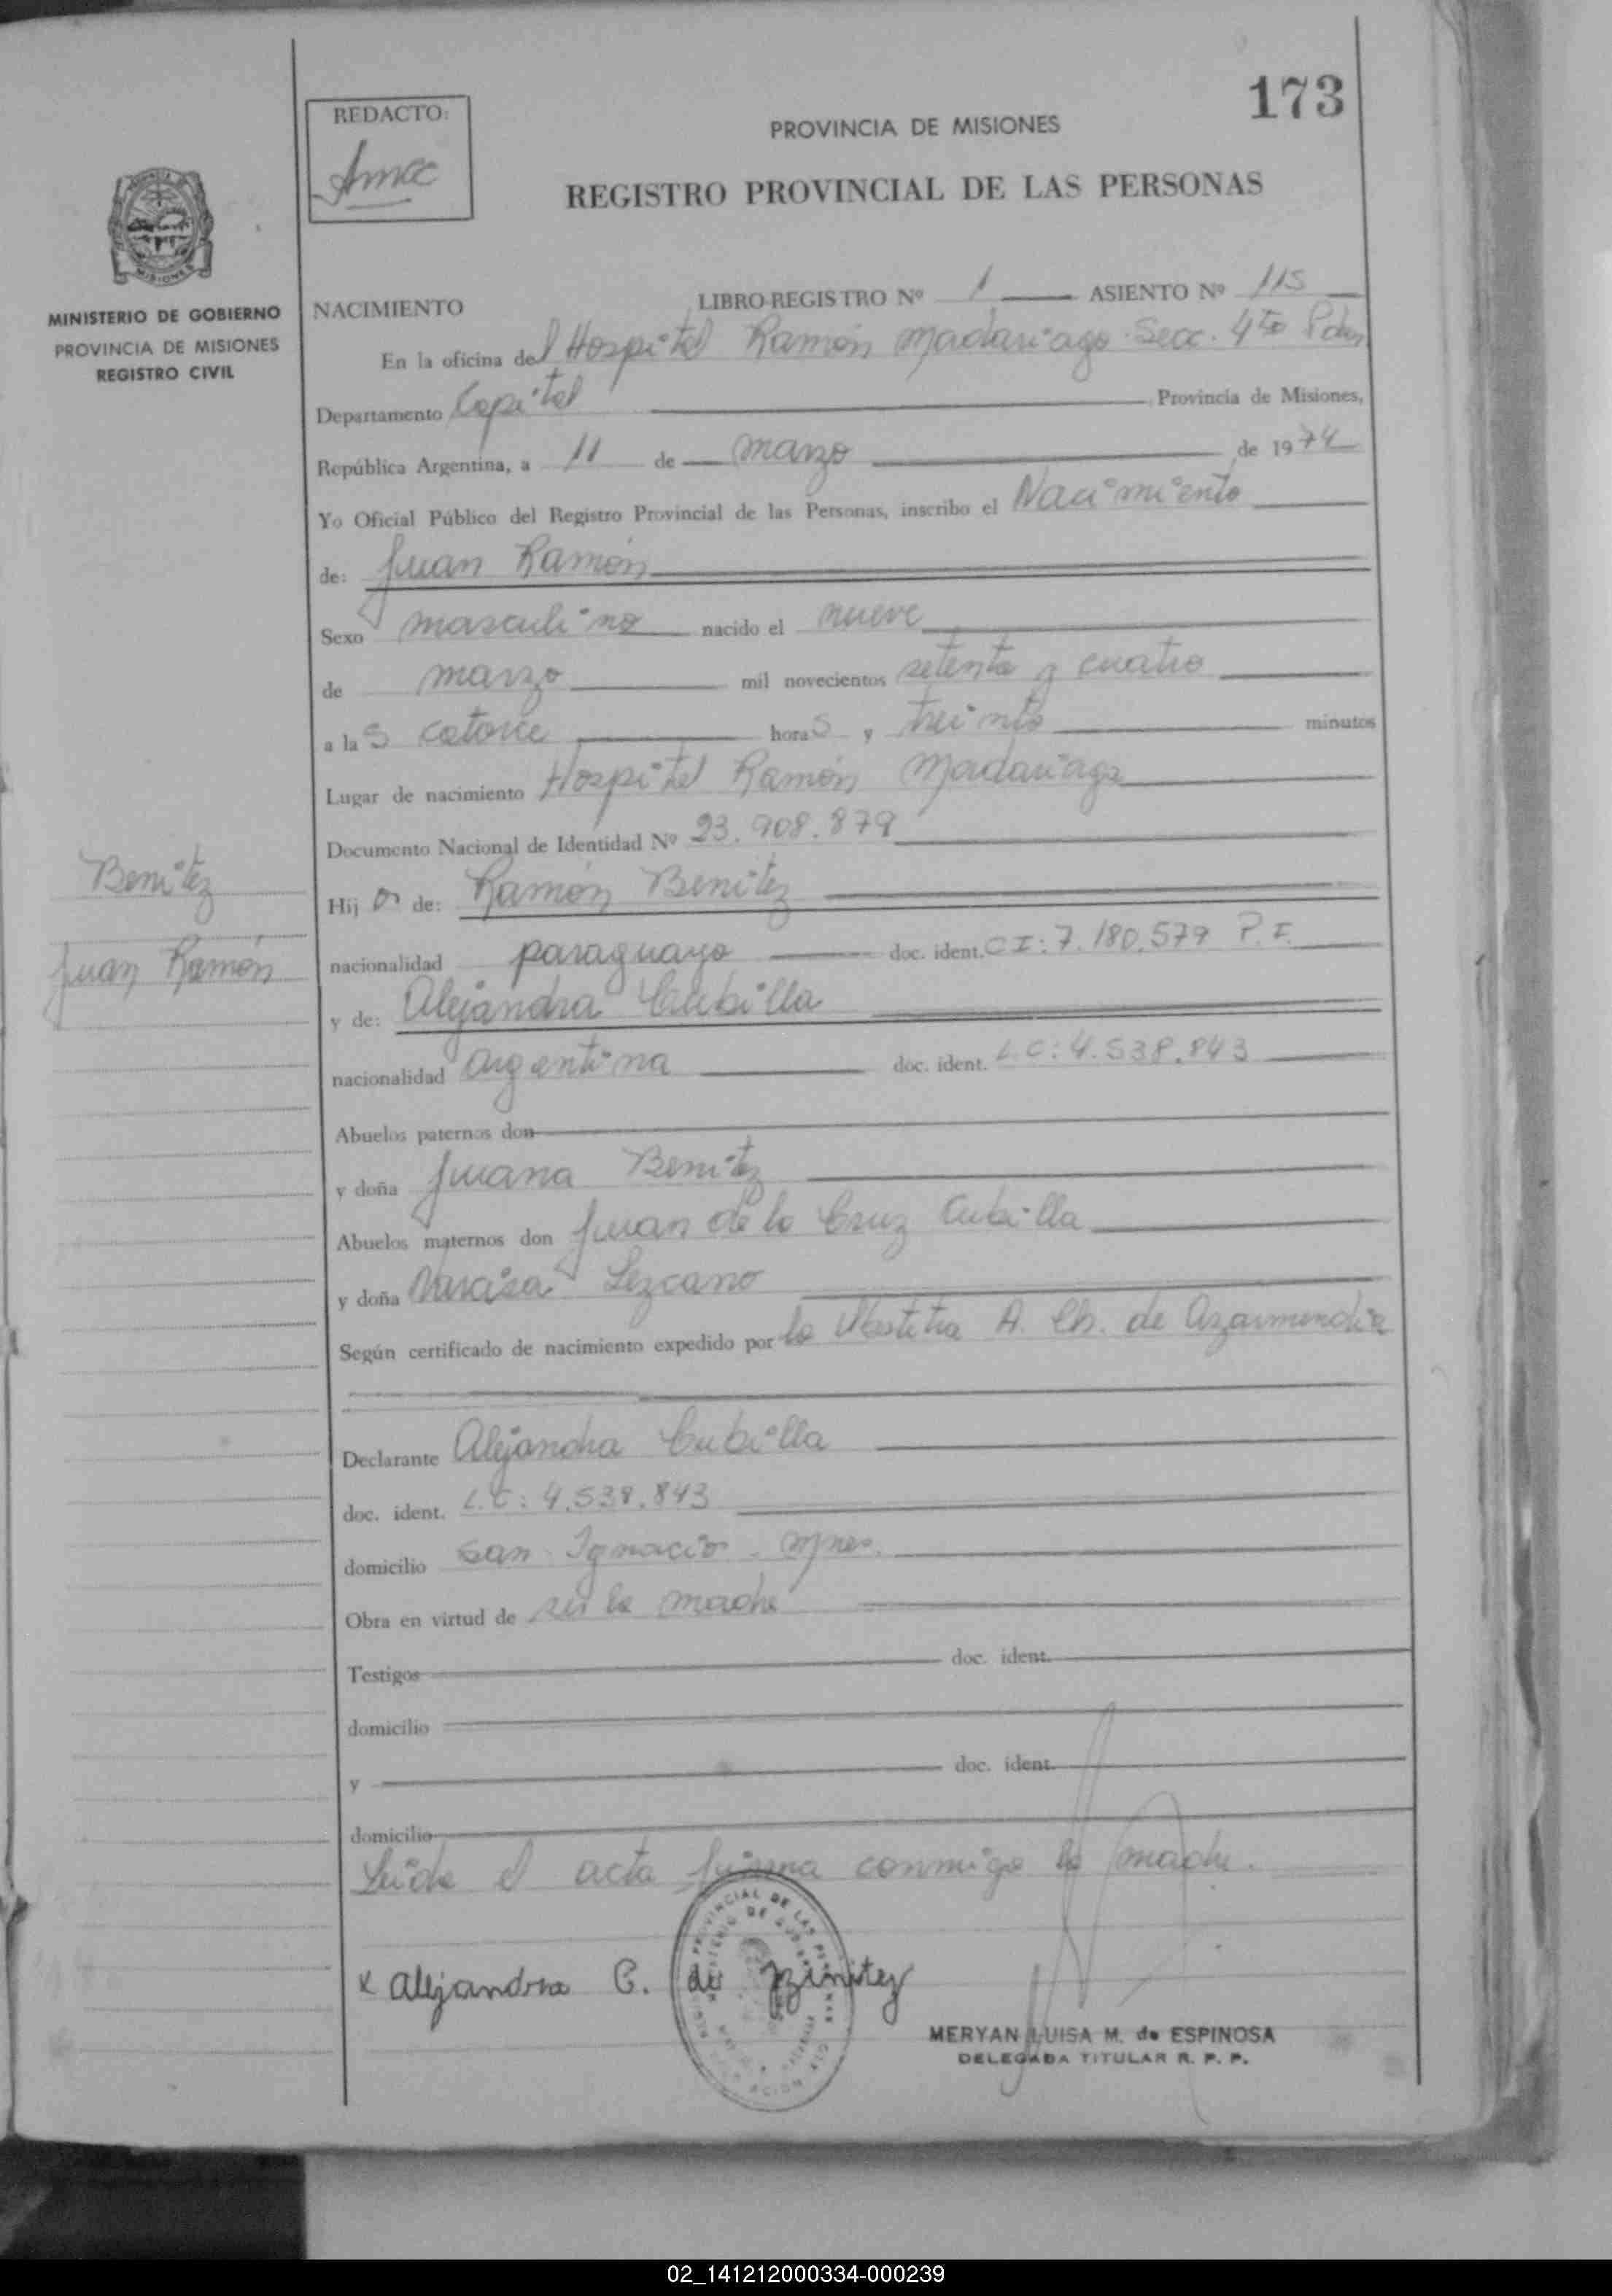 173
REDACTO:
Amcc
PROVINCIA DE MISIONES
REGISTRO PROVINCIAL DE LAS PERSONAS
MISIONES
MINISTERIO DE GOBIERNO
PROVINCIA DE MISIONES
REGISTRO CIVIL
NACIMIENTO LIBRO-REGISTRO Nº 1 ASIENTO Nº 115
En la oficina del Hospital Ramón Madariaga. Secc. 4ta Pdas
Departamento Capital Provincia de Misiones,
República Argentina, a 11 de marzo de 1974
Yo Oficial Público del Registro Provincial de las Personas, inscribo el Nacimiento
de: Juan Ramón
Sexo masculino nacido el nueve
de marzo mil novecientos setenta y cuatro
a las catorce horas y treinta minutos
Lugar de nacimiento Hospital Ramón Madariaga
Documento Nacional de Identidad Nº 23.908.879
Benitez
Juan Ramón
Hijo de: Ramón Benitez
nacionalidad paraguayo doc. ident. CI: 7.180.579 P.F.
y de: Alejandra Cubilla
nacionalidad argentina doc. ident. L.C: 4.538.843
Abuelos paternos don
y doña Juana Benitez
Abuelos maternos don Juan de la Cruz Cubilla
y doña Narcisa Lezcano
Según certificado de nacimiento expedido por la Obstetra A. Ch. de Azarmendia
Declarante Alejandra Cubilla
doc. ident. L.C: 4.538.843
domicilio San Ignacio. Mnes.
Obra en virtud de ser la madre
Testigos doc. ident.
domicilio
y doc. ident.
domicilio
Leida el acta firma conmigo la madre.
x alejandra C. de Benitez
MERYAN LUISA M. de ESPINOSA
DELEGADA TITULAR R. P. P.
02_141212000334-000239